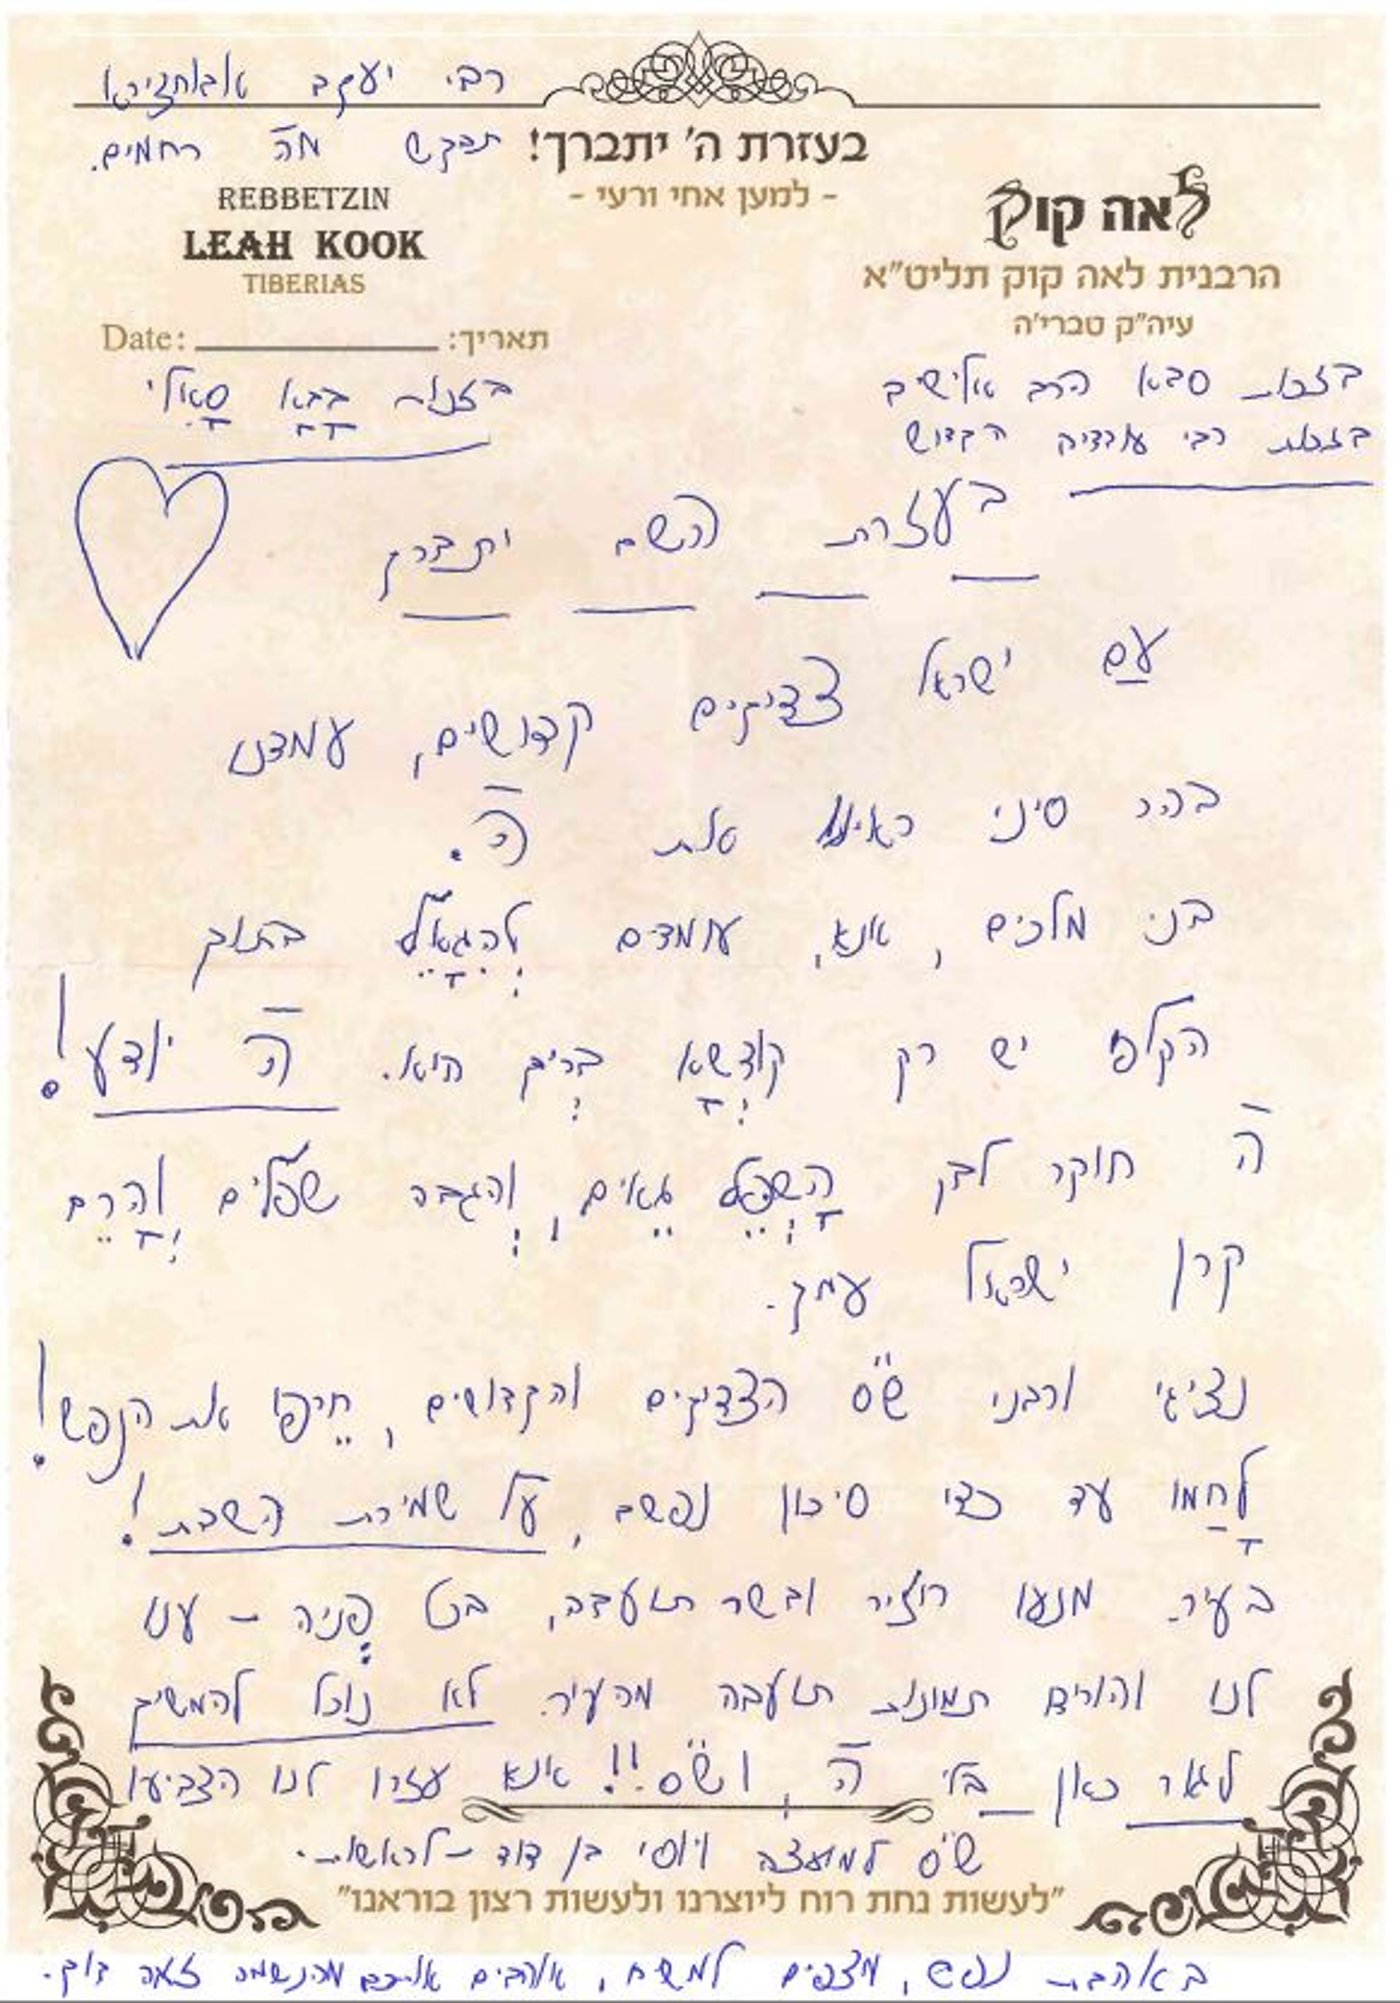 רבי יעקב אבוחצירא
תבקש מה' רחמים.
בעזרת ה' יתברך!
- למען אחי ורעי -
REBBETZIN
LEAH KOOK
TIBERIAS
Date: תאריך:
לאה קוק
הרבנית לאה קוק תליט"א
עיה"ק טברי'ה
בזכות סבא הרב אלישיב
בזכות רבי עובדיה הקדוש
בזכות בָּבָא סָאלי
בעזרת השם יתברך
עַם ישראל צדיקים קדושים, עמדנו
בהר סיני ראינו את ה'.
בני מלכים, אנא, עומדים לְהִגָאֵל בתוך
הקלפי יש רק קודְשָא בְּריך הוא. ה' יודע!
ה' חוקר לבן הָשְפֵּל גֵאים, וְהגבה שפלים וְהָרֵם
קרן ישראל עמך.
נציגי ורבני ש"ס הצדיקים והקדושים, חֵרפו את הנפש!
לָחַמו עד כדי סיכון נפשם, על שמירת השבת!
בעיר. מנעו חזיר ובשר תועבה, בכל פְּניה - ענו
לנו והורידו תמונות תועבה מהעיר. לא נוכל להמשיך
לגור כאן בלי ה', וש"ס!! אנא עזרו לנו הצביעו
ש"ס למועצה ויוסי בן דוד - לראשות.
"לעשות נחת רוח ליוצרנו ולעשות רצון בוראנו"
באהבת נפש, מצפים למשיח, אוהבים אתכם מהנשמה לאה קוק.